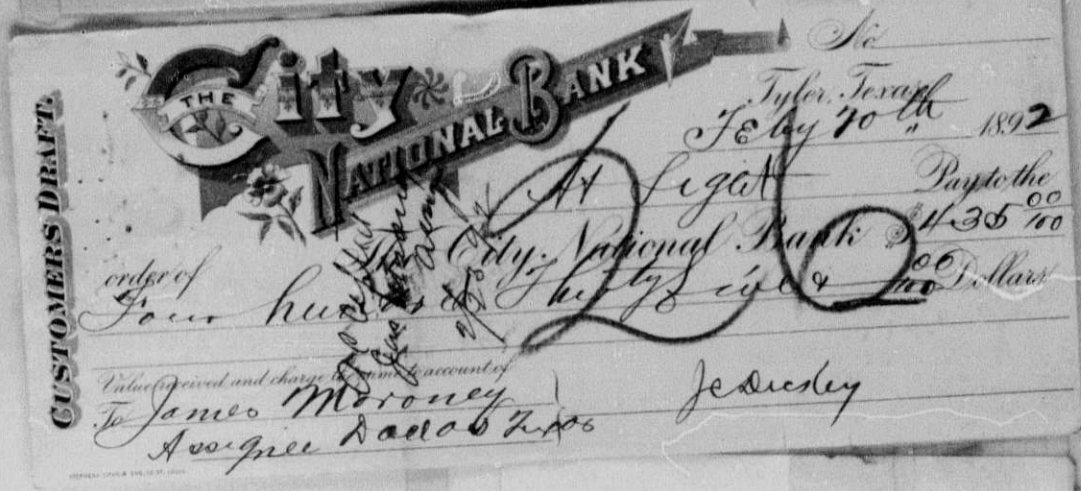 CUSTOMERS DRAFT.
THE City NATIONAL BANK
No
Tyler, Texas,
Feby 20th 1892
At Sight Pay to the
order of The City National Bank $435 00/100
Four hundred Thirty five & 00/100 Dollars
Value received and charge the same to account of
To James Moroney
Assignee Dallas Texas
Accepted